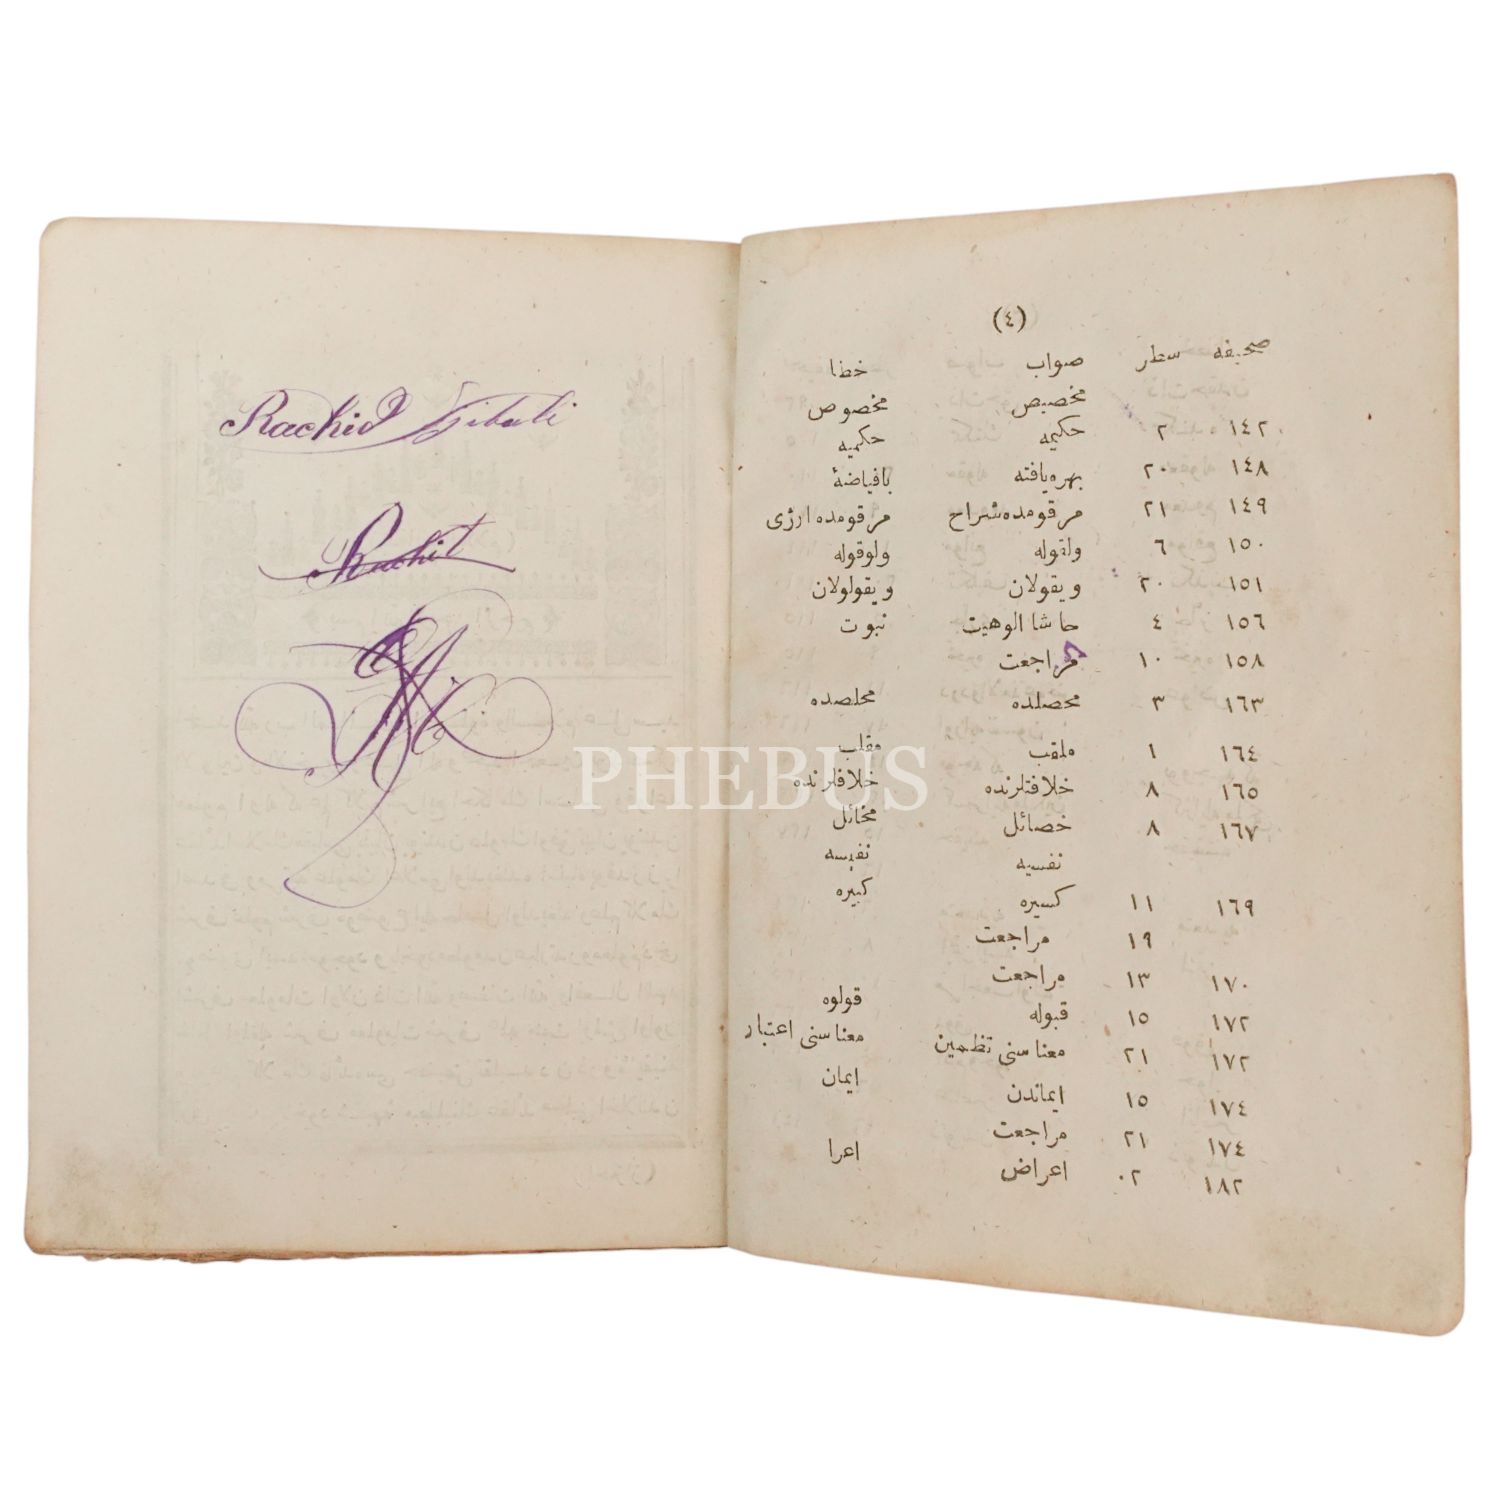 Rachid
Rachid
(٤)
صحیفه سطر صواب خطا
مخصیص مخصوص
١٤٢ ٢ حکیمه حکمیه
١٤٨ ٢٠ بهره‌یافته بافیاضۀ
١٤٩ ٢١ مرقومده شراح مرقومده ارژی
١٥٠ ٦ ولقوله ولوقوله
١٥١ ٢٠ ویقولان ویقولولان
١٥٦ ٤ حاشا الوهیت نبوت
١٥٨ ١٠ مراجعت
١٦٣ ٣ محصلده محلصده
١٦٤ ١ ملقب مقلب
١٦٥ ٨ خلافتلرنده خلافلرنده
١٦٧ ٨ خصائل مخائل
نفسیه نفیسه
١٦٩ ١١ کسیره کبیره
١٩ مراجعت
١٧٠ ١٣ مراجعت
١٧٢ ١٥ قبوله قولوه
١٧٢ ٢١ معناسنی تظمین معناسنی اعتبار
١٧٤ ١٥ ایماندن ایمان
١٧٤ ٢١ مراجعت
١٨٢ ٠٢ اعراض اعرا
PHEBUS